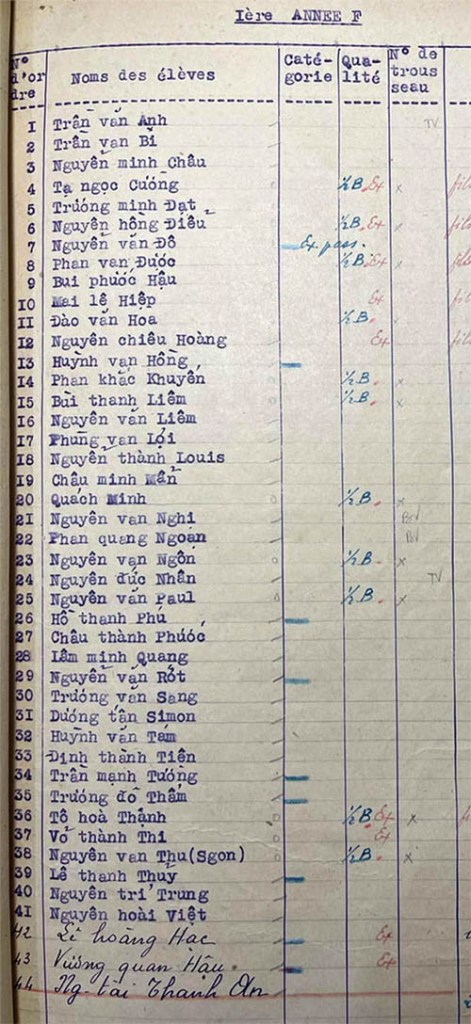 Ière ANNEE F
N° d'ordre Noms des élèves Caté-gorie Qua-lité N° de trous seau
1 Trần văn Anh TV
2 Trần văn Bỉ
3 Nguyễn minh Châu
4 Tạ ngọc Cương ½B. Ex x
5 Trương minh Đạt
6 Nguyễn hồng Diểu ½B. Ex x
7 Nguyễn văn Đô Ex pass.
8 Phan văn Được ½B. Ex x
9 Bui phước Hậu
10 Mai lê Hiệp Ex
11 Đào văn Hoa ½B.
12 Nguyễn chiêu Hoàng Ex
13 Huỳnh văn Hồng
14 Phan khắc Khuyến ½B. x
15 Bui thanh Liêm ½B. x
16 Nguyễn văn Liêm
17 Phung van Lợi
18 Nguyễn thành Louis
19 Châu minh Mẫn
20 Quách Minh ½B. x
21 Nguyễn van Nghi BV
22 Phan quang Ngoạn BV
23 Nguyễn van Ngôn ½B. x
24 Nguyễn đức Nhân TV
25 Nguyễn văn Paul ½B. x
26 Hồ thanh Phú
27 Châu thành Phước
28 Lâm minh Quang
29 Nguyễn văn Rót
30 Trương văn Sang
31 Dương tấn Simon
32 Huỳnh văn Tam
33 Đinh thành Tiên
34 Trần mạnh Tường
35 Trương đồ Thẩm
36 Tô hoà Thạnh ½B Ex x
37 Vỏ thành Thi Ex
38 Nguyễn van Thu(Sgon) ½B. x
39 Lê thanh Thuỷ
40 Nguyễn tri Trung
41 Nguyễn hoài Việt
42 Lê hoàng Hac Ex
43 Vương quan Hậu. Ex
44 Ng. tài Thanh An